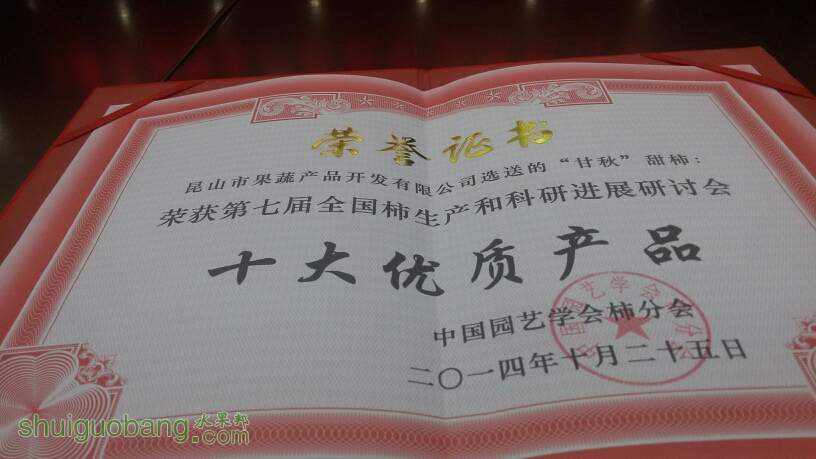 荣誉证书
昆山市果蔬产品开发有限公司选送的“甘秋”甜柿：
荣获第七届全国柿生产和科研进展研讨会
十大优质产品
中国园艺学会柿分会
二〇一四年十月二十五日
水果邦
shuiguobang.com